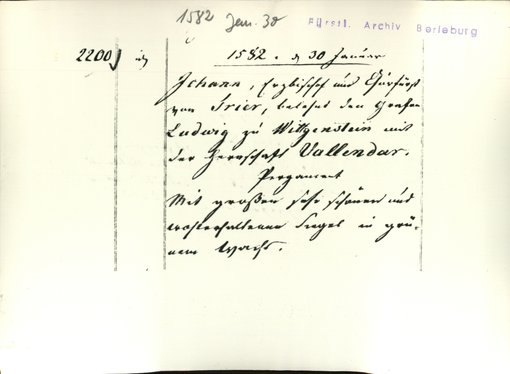 1582 Jan. 30
Fürstl. Archiv Berleburg
2200
1582. d 30 Januar
Johann, Erzbischof und Churfürst
von Trier, belehnt den Grafen
Ludwig zu Wittgenstein mit
der Herrschaft Vallendar.
Pergament
Mit großen sehr schönen und
wohlerhaltenem Siegel in grü-
nem Wachs.